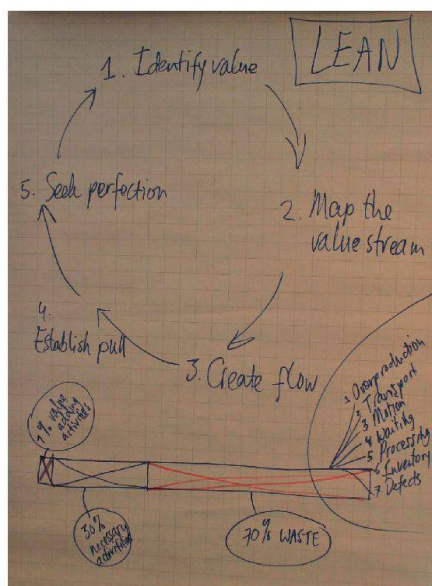 LEAN
1. Identify value
2. Map the
value stream
3. Create flow
4.
Establish pull
5. Seek perfection
1% value
adding
activities
30%
necessary
activities
70% WASTE
1 Overproduction
2 Transport
3 Motion
4 Waiting
5 Processing
6 Inventory
7 Defects